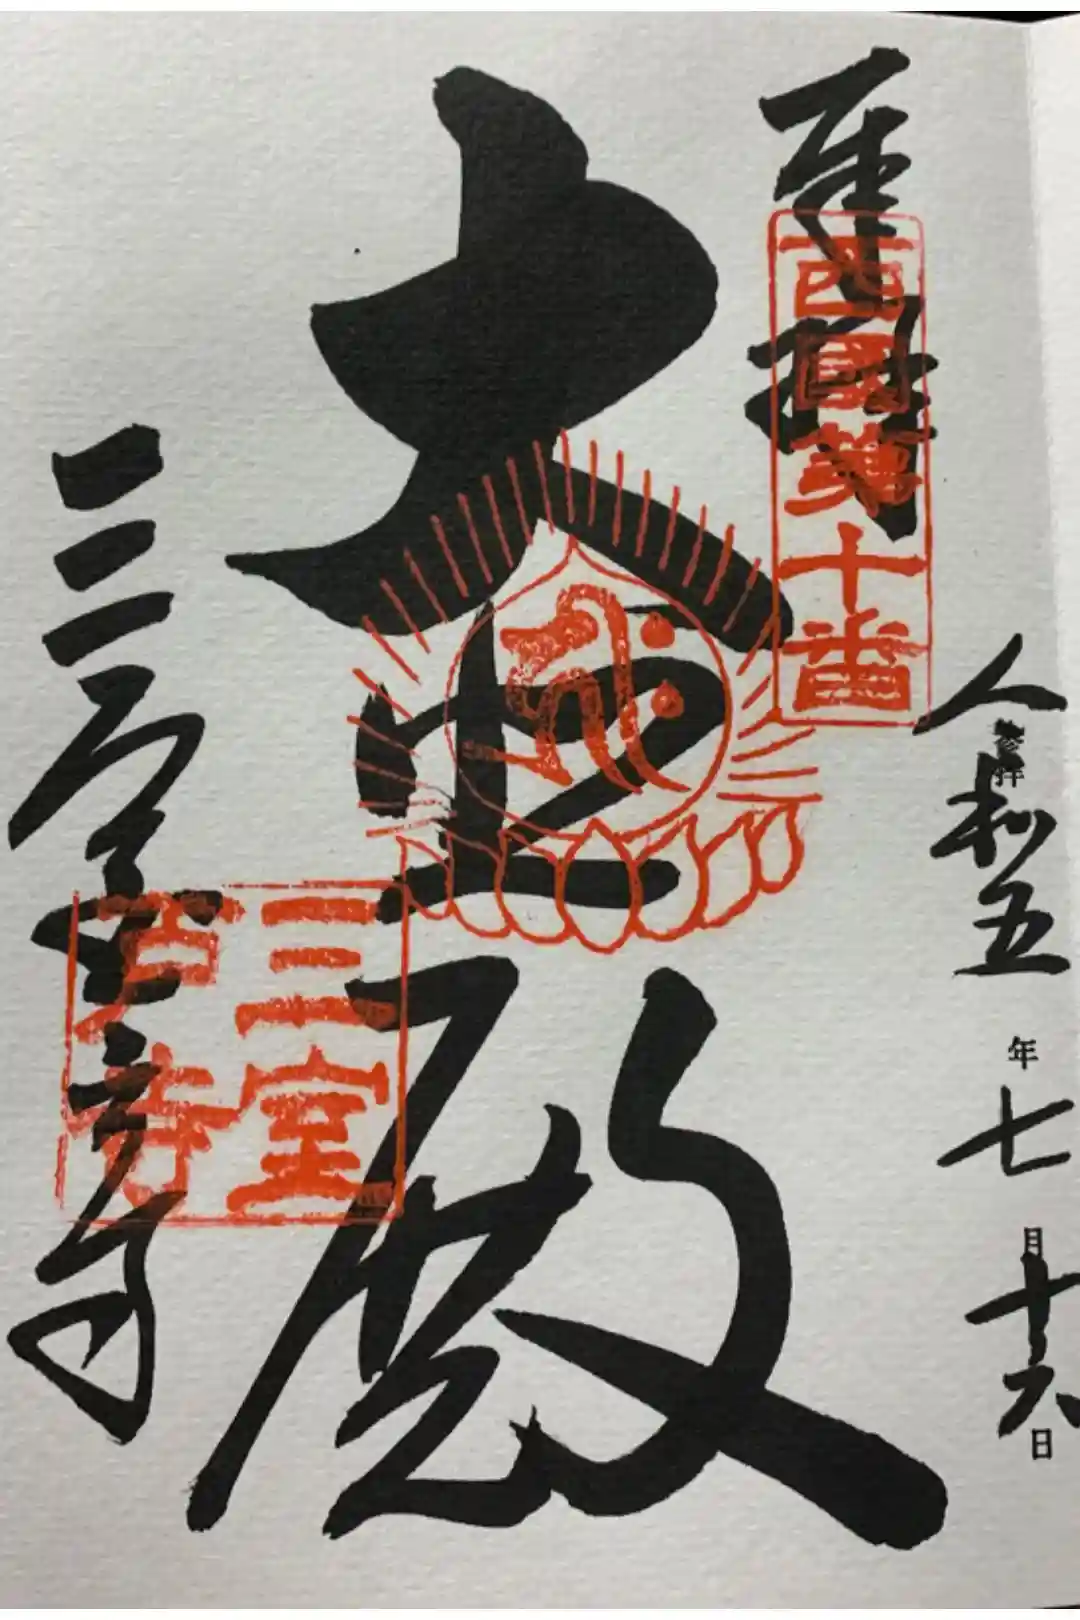 奉拝
西國第十番
参拝
令和五年七月十六日
大悲殿
三室戸寺
三室
戸寺